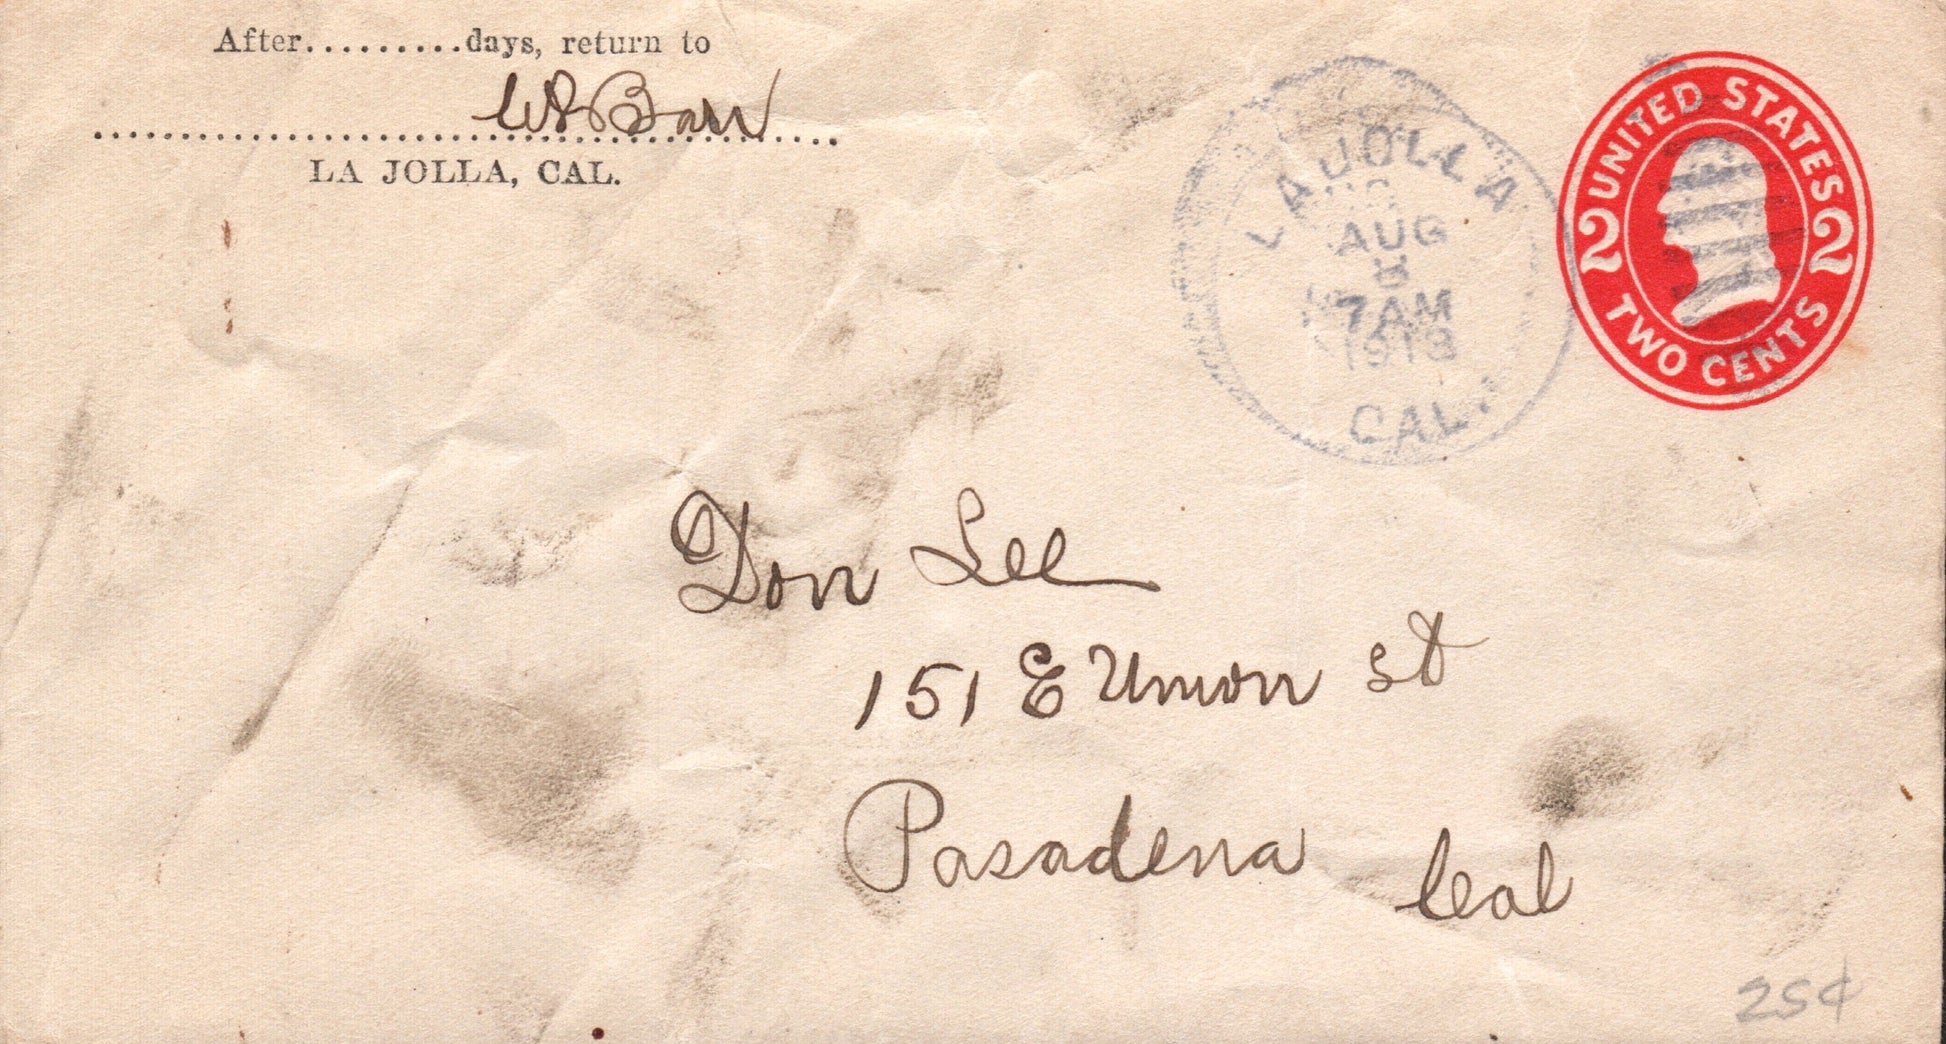 After.........days, return to
WS Barr
LA JOLLA, CAL.
LA JOLLA
AUG
7 AM
1913
CAL.
UNITED STATES
2 2
TWO CENTS
Don Lee
151 E Union st
Pasadena Cal
25¢